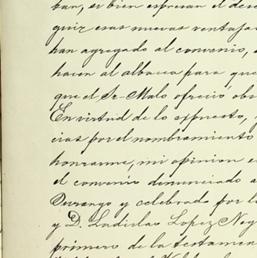 ban, si bien espresan el dese
guir esas nuevas ventajas
han agregado al convenio,
hacen al albacea para que
que el Sr. Malo ofreció obs
En virtud de lo espuesto,
cias por el nombramiento
honrarme, mi opinion e
el convenio denunciado a
Durango y celebrado por l
y D. Ladislao Lopez Neg
primero de la testamen